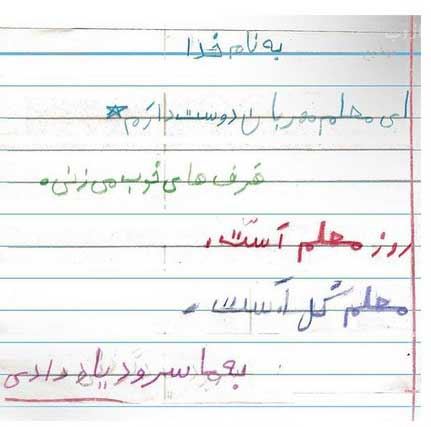 به نام خدا
ای معلم مهربان دوست دارم *
حرف های خوب می زنی.
روز معلم است.
معلم گل است.
به ما سرود یاد دادی